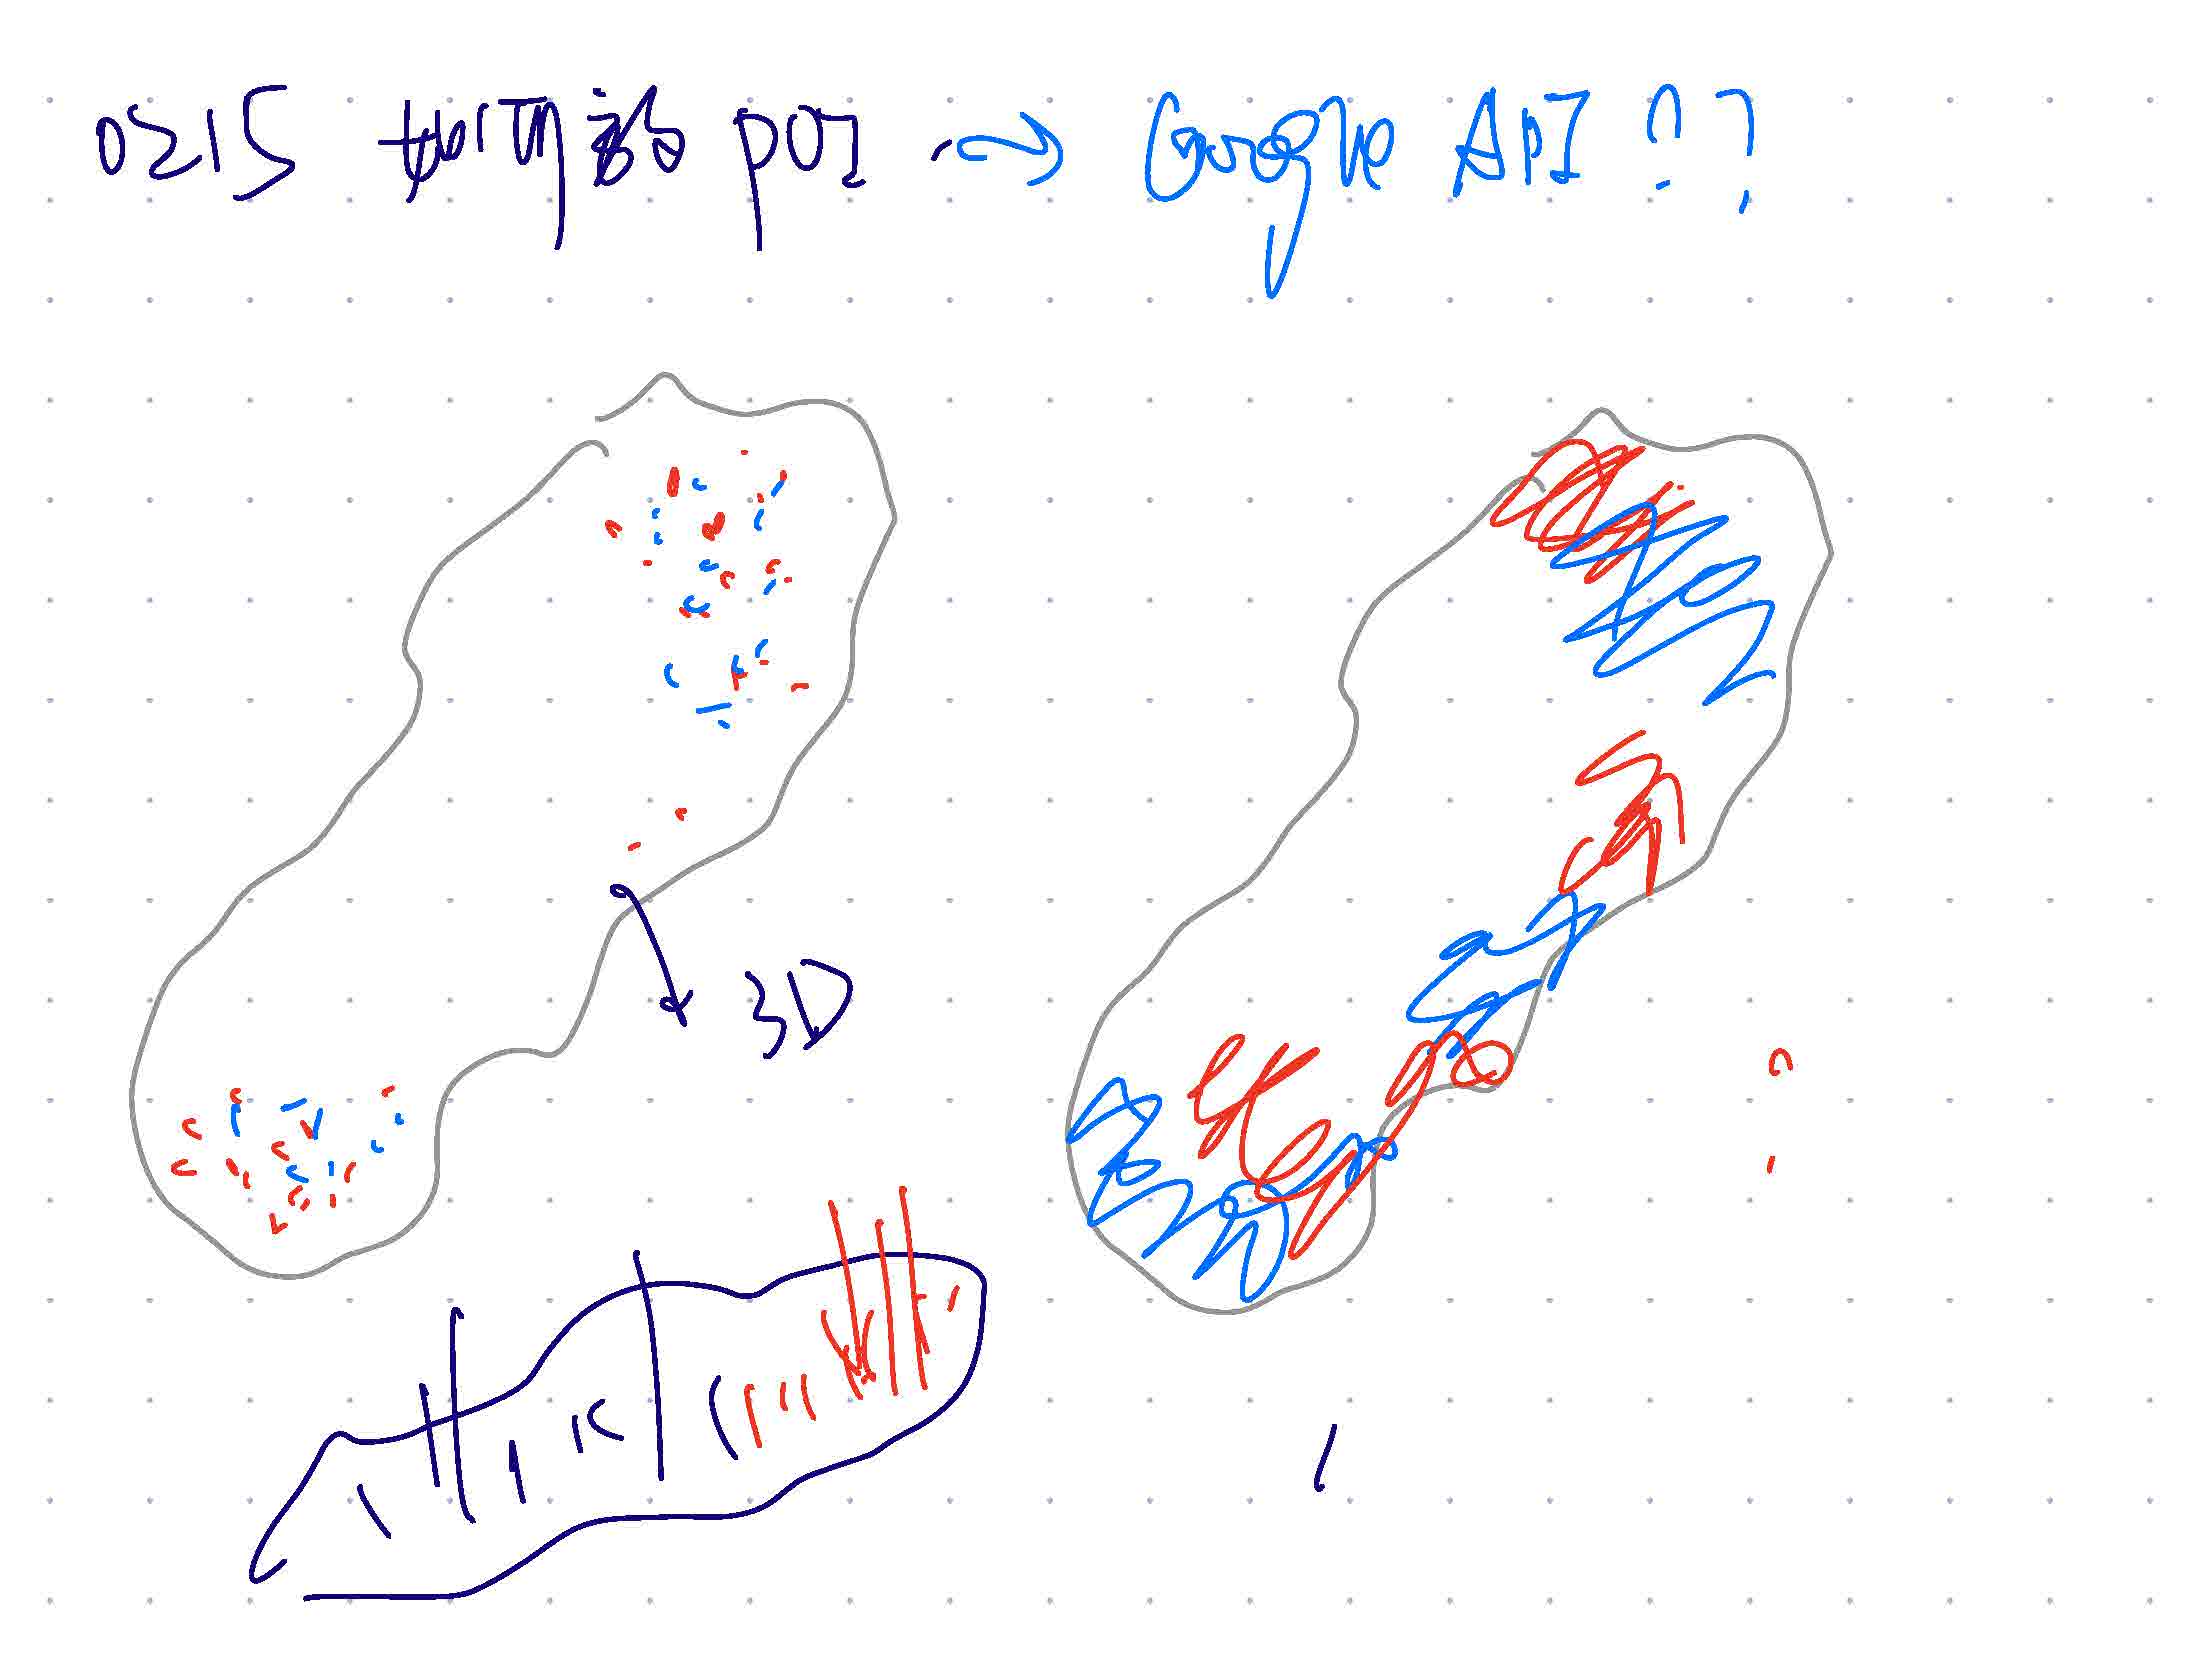 0215 如何 POI → Google API ??
3D